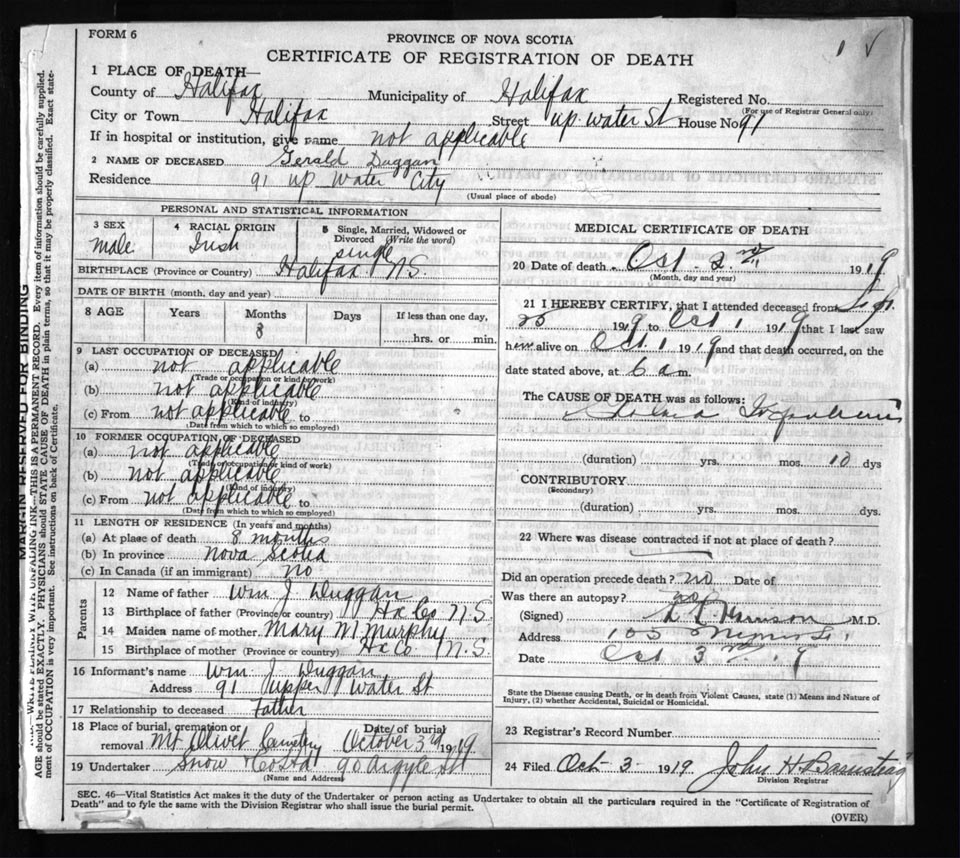 FORM 6
PROVINCE OF NOVA SCOTIA
CERTIFICATE OF REGISTRATION OF DEATH
1 PLACE OF DEATH—
County of Halifax Municipality of Halifax Registered No.
(For use of Registrar General only)
City or Town Halifax Street up. water St House No 91
If in hospital or institution, give name not applicable
2 NAME OF DECEASED Gerald Duggan
Residence 91 up Water City
(Usual place of abode)
PERSONAL AND STATISTICAL INFORMATION
3 SEX male 4 RACIAL ORIGIN Irish 5 Single, Married, Widowed or Divorced (Write the word) single
BIRTHPLACE (Province or Country) Halifax N.S.
DATE OF BIRTH (month, day and year)
8 AGE Years Months Days If less than one day,
8 hrs. or min.
9 LAST OCCUPATION OF DECEASED
(a) not applicable
(Trade or occupation or kind of work)
(b) not applicable
(Kind of industry)
(c) From not applicable to
(Date from which to which so employed)
10 FORMER OCCUPATION OF DECEASED
(a) not applicable
(Trade or occupation or kind of work)
(b) not applicable
(Kind of industry)
(c) From not applicable to
(Date from which to which so employed)
11 LENGTH OF RESIDENCE (In years and months)
(a) At place of death 8 months
(b) In province Nova Scotia
(c) In Canada (if an immigrant) no
Parents
12 Name of father Wm J. Duggan
13 Birthplace of father (Province or country) Hx Co N.S.
14 Maiden name of mother Mary M Murphy
15 Birthplace of mother (Province or country) Hx Co N.S.
16 Informant's name Wm. J Duggan
Address 91 Upper Water St
17 Relationship to deceased Father
18 Place of burial, cremation or removal Mt Olivet Cemetery Date of burial October 3rd 1919.
19 Undertaker Snow Costa 90 Argyle St
(Name and Address)
MEDICAL CERTIFICATE OF DEATH
20 Date of death Oct 2nd 1919
(Month, day and year)
21 I HEREBY CERTIFY, that I attended deceased from Sep.
25 1919 to Oct 1 1919 that I last saw
him alive on Oct. 1 1919 and that death occurred, on the
date stated above, at 6 am.
The CAUSE OF DEATH was as follows:
(duration) yrs. mos. 10 dys
CONTRIBUTORY
(Secondary)
(duration) yrs. mos. dys.
22 Where was disease contracted if not at place of death?
Did an operation precede death? no Date of
Was there an autopsy? no
(Signed) Morrison M.D.
Address 105
Date Oct 3 19
State the Disease causing Death, or in death from Violent Causes, state (1) Means and Nature of
Injury, (2) whether Accidental, Suicidal or Homicidal.
23 Registrar's Record Number
24 Filed Oct 3 1919 John H
Division Registrar
SEC. 46—Vital Statistics Act makes it the duty of the Undertaker or person acting as Undertaker to obtain all the particulars required in the "Certificate of Registration of
Death" and to fyle the same with the Division Registrar who shall issue the burial permit.
(OVER)
MARGIN RESERVED FOR BINDING
WRITE PLAINLY WITH UNFADING INK—THIS IS A PERMANENT RECORD. Every item of information should be carefully supplied.
AGE should be stated EXACTLY. PHYSICIANS should STATE CAUSE OF DEATH in plain terms, so that it may be properly classified. Exact state-
ment of OCCUPATION is very important. See instructions on back of Certificate.